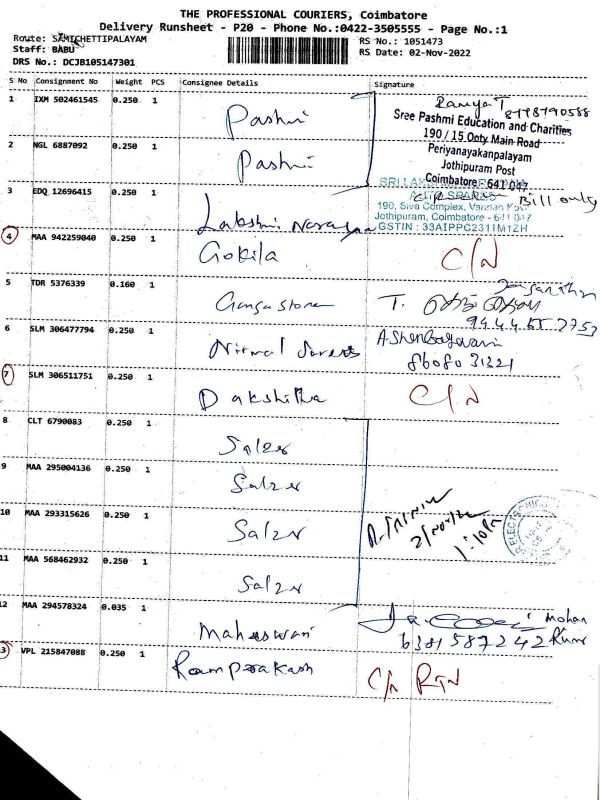 THE PROFESSIONAL COURIERS, Coimbatore
Delivery Runsheet - P20 - Phone No.:0422-3505555 - Page No.:1
Route: SAMICHETTIPALAYAM
RS No.: 1051473
Staff: BABU
RS Date: 02-Nov-2022
DRS No.: DCJB105147301
S No Consignment No Weight PCS Consignee Details Signature
1 IXM 502461545 0.250 1 Pashmi
Ramya T
8778790588
Sree Pashmi Education and Charities
190 / 15 Onty Main Road
Periyanayakanpalayam
Jothipuram Post
Coimbatore - 641 047
2 NGL 6887092 0.250 1 Pashmi
3 EDQ 12696415 0.250 1 Lakshmi Narayana
AUTO SPARES
Bill only
190, Siva Complex,
Jothipuram, Coimbatore - 641 047
GSTIN : 33AIPPC2311M1ZH
4 MAA 942259040 0.250 1 Gokila C/N
5 TDR 5376339 0.160 1 Ganga Store T.
6 SLM 306477794 0.250 1 Nirmal
86080 31321
7 SLM 306511751 0.250 1 Dakshitha C/N
8 CLT 6790083 0.250 1 Salzer
9 MAA 295004136 0.250 1 Salzer
10 MAA 293315626 0.250 1 Salzer
1:10Pm
11 MAA 568462932 0.250 1 Salzer
12 MAA 294578324 0.035 1 Maheswari
Mohan
6381587242 Kumar
13 VPL 215847088 0.250 1 Ramprakash C/N RTN